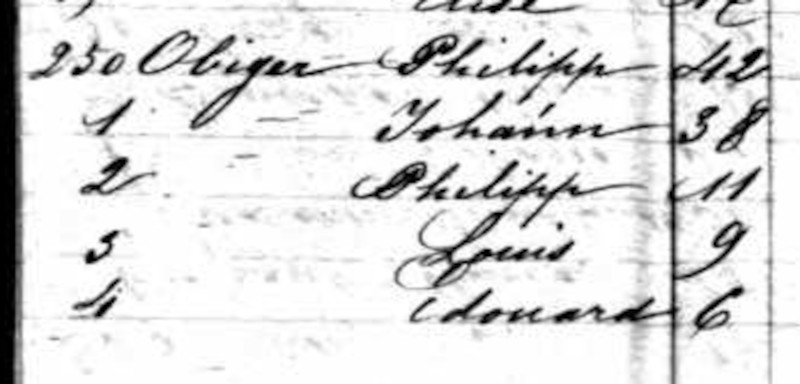 250 Obiger Philipp 42
1 — Johann 38
2 Philipp 11
3 Louis 9
4 Edouard 6